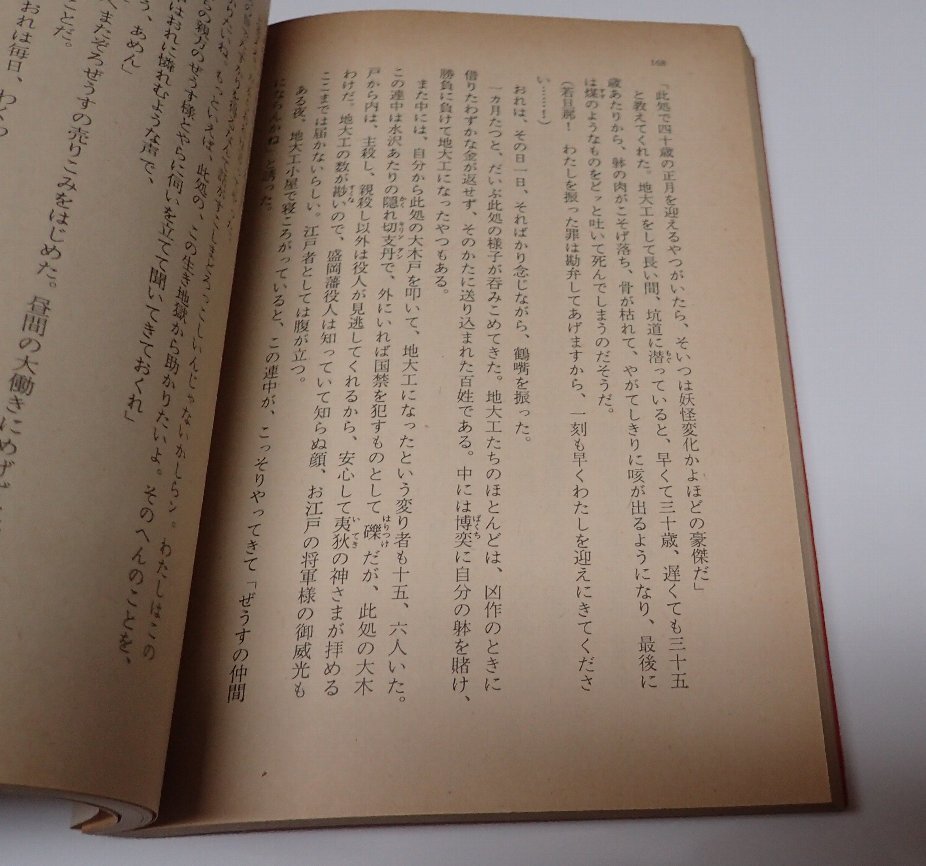 168
「此処で四十歳の正月を迎えるやつがいたら、そいつは妖怪変化かよほどの豪傑だ」
と教えてくれた。地大工をして長い間、坑道に潜っていると、早くて三十歳、遅くても三十五
歳あたりから、躰の肉がこそげ落ち、骨が枯れて、やがてしきりに咳が出るようになり、最後に
は煤のようなものをどッと吐いて死んでしまうのだそうだ。
(若旦那! わたしを振った罪は勘弁してあげますから、一刻も早くわたしを迎えにきてくださ
い………!)
おれは、その日一日、そればかり念じながら、鶴嘴を振った。
一ヵ月たつと、だいぶ此処の様子が呑みこめてきた。地大工たちのほとんどは、凶作のときに
借りたわずかな金が返せず、そのかたに送り込まれた百姓である。中には博奕に自分の躰を賭け、
勝負に負けて地大工になったやつもある。
また中には、自分から此処の大木戸を叩いて、地大工になったという変り者も十五、六人いた。
この連中は水沢あたりの隠れ切支丹で、外にいれば国禁を犯すものとして磔だが、此処の大木
戸から内は、主殺し、親殺し以外は役人が見逃してくれるから、安心して夷狄の神さまが拝める
わけだ。地大工の数が尠いので、盛岡藩役人は知っていて知らぬ顔、お江戸の将軍様の御威光も
ここまでは届かないらしい。江戸者としては腹が立つ。
ある夜。地大工小屋で寝ころがっていると、この連中が、こっそりやってきて「ぜうすの仲間
にならんかね」と誘った。
もっといえば、此処の、この生き地獄から助かりたいよ。そのへんのことを、
の親方のぜうす様とやらに伺いを立てて聞いてきておくれ」
はおれに憐れむような声で、
う、あめん」
へまたぞろぜうすの売りこみをはじめた。昼間の大働きにめげ
ことだ。
おれは毎日、